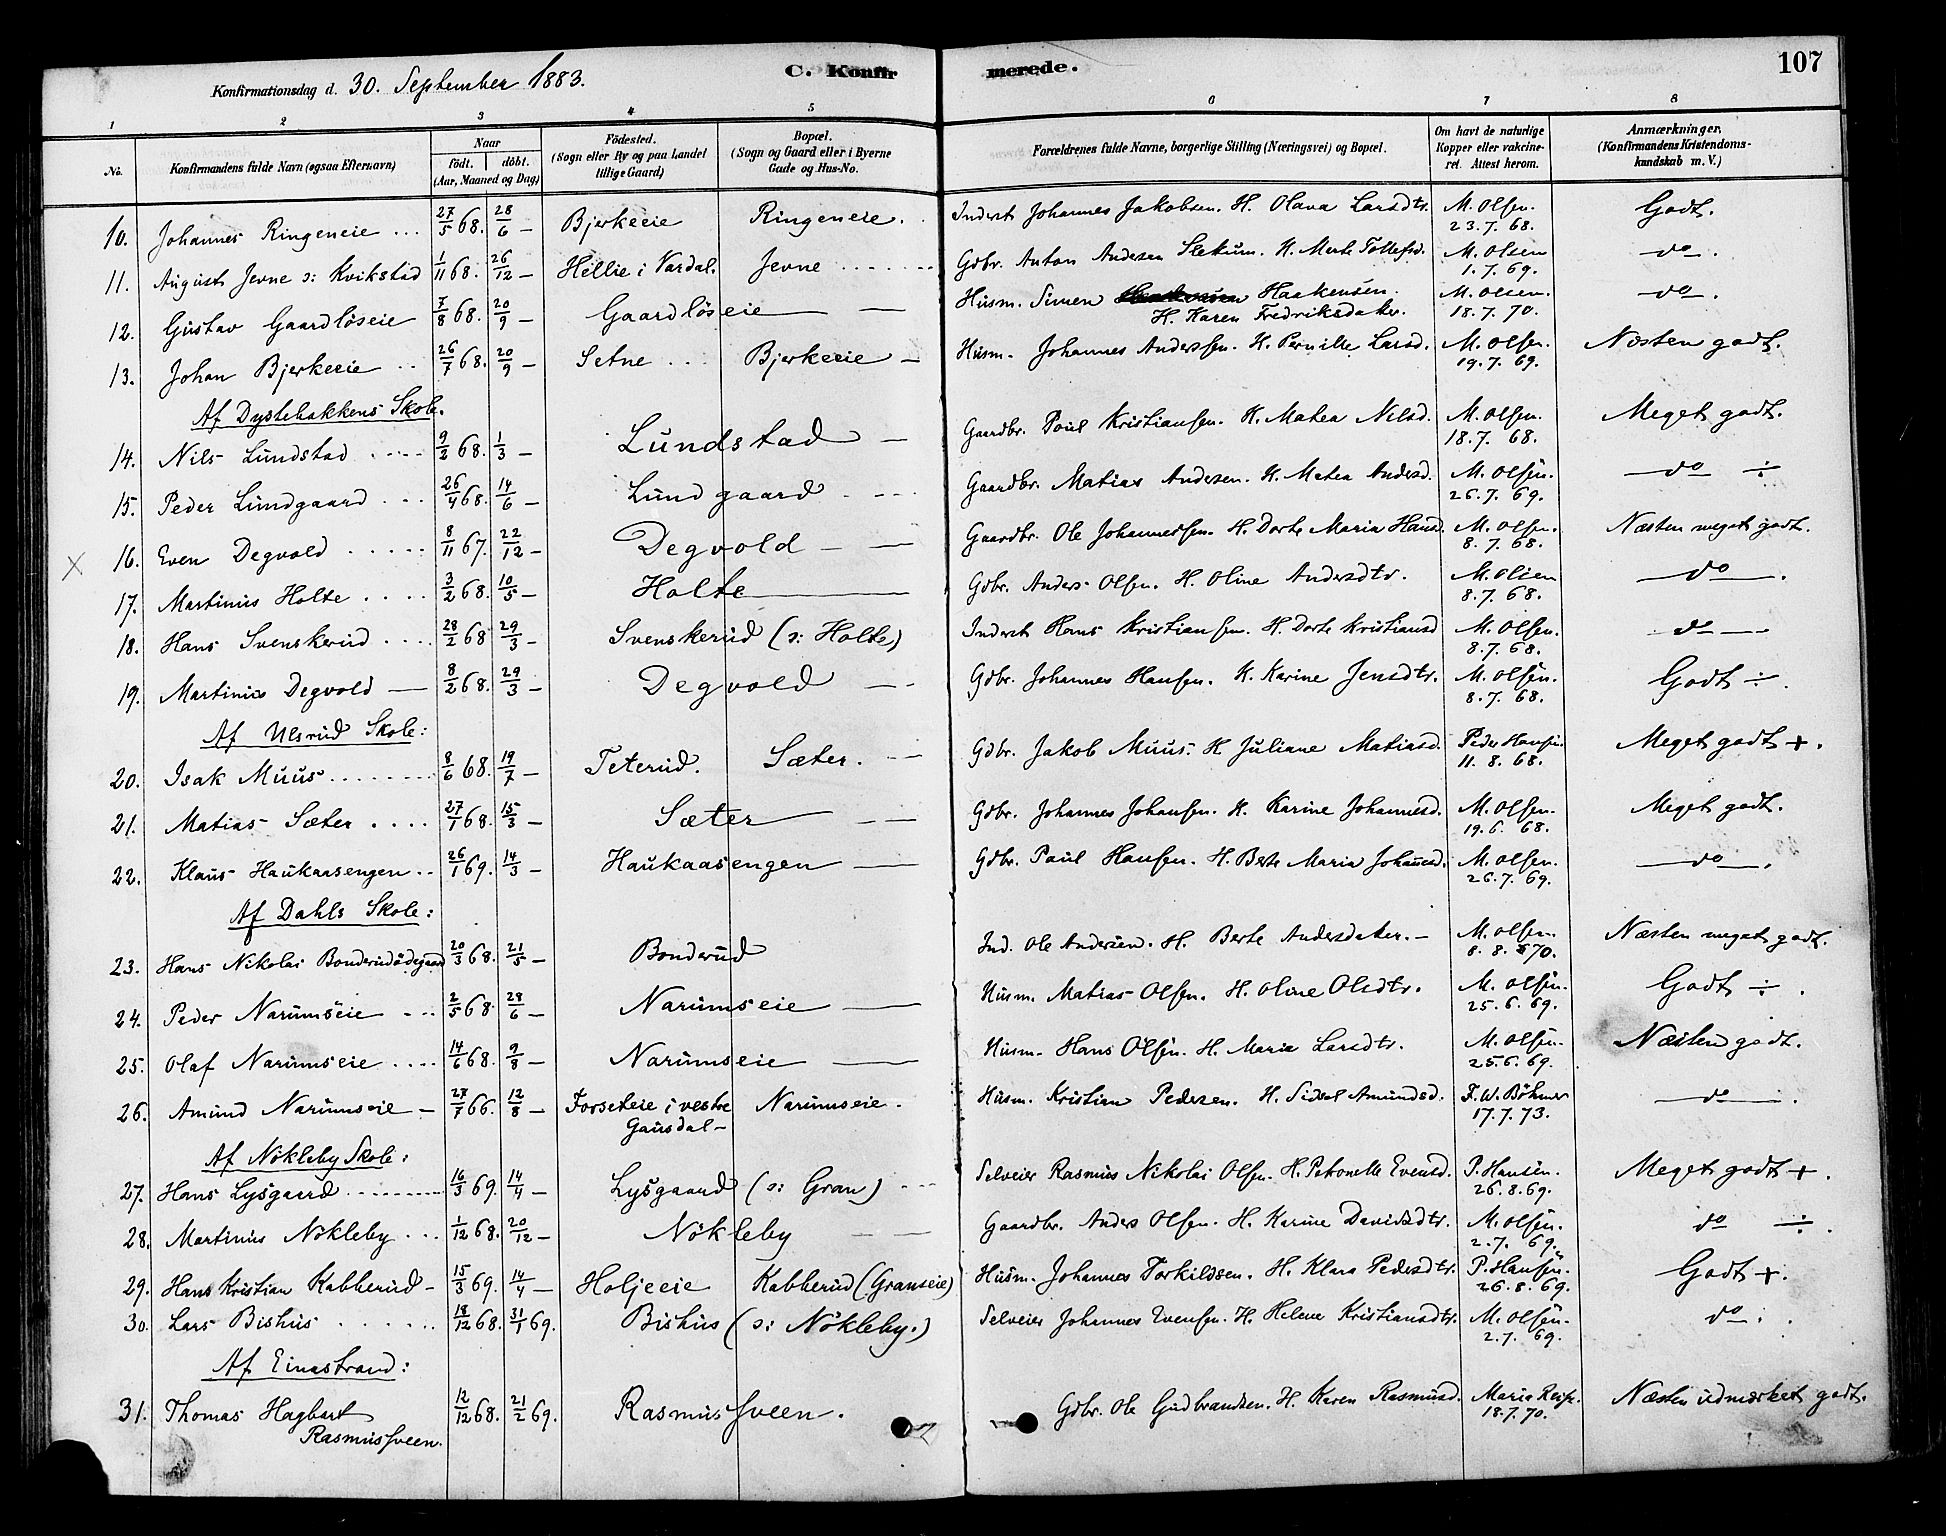 Konfirmationsdag d. 30. September 1883.
C. Konfirmerede.
107
1 2 3 4 5 6 7 8
No.
Konfirmandens fulde Navn (ogsaa Efternavn)
Naar
födt. döbt.
(Aar, Maaned og Dag)
Födested.
(Sogn eller By og paa Landet
tillige Gaard)
Bopæl.
(Sogn og Gaard eller i Byerne
Gade og Hus-No.
Forældrenes fulde Navne, borgerlige Stilling (Næringsvei) og Bopæl.
Om havt de naturlige
Kopper eller vakcine-
ret. Attest herom.
Anmærkninger.
(Konfirmandens Kristendoms-
kundskab m. V.)
10. Johannes Ringeneie ... 27/5 68. 28/6 — Bjerkeeie Ringeneie. Inderst Johannes Jakobsen. H. Olava Larsdtr. M. Olsen. 23.7.68. Godt.
11. August Jevne ɔ: Kvikstad 1/11 68. 26/12 — Hellie i Vardal. Jevne ...... Gdbr. Anton Andersen H. Marte Tollefsd. M. Olsen 1.7.69. do.
12. Gustav Gaardlöseie 7/8 68. 20/9 — Gaardlöseie — Husm. Simen Haakensen. H. Karen Fredriksdatter. M. Olsen. 18.7.70. do.
13. Johan Bjerkeeie .. 26/7 68. 20/9 — Setne ... Bjerkeeie — Husm. Johannes Anderssen. H. Pernille Larsd. M. Olsen. 19.7.69. Næsten godt.
Af Dystebakkens Skole.
14. Nils Lundstad .... 9/2 68. 1/3 — Lundstad — Gaardbr. Poul Kristiansen. H. Matea Nilsd. M. Olsen. 18.7.68. Meget godt.
15. Peder Lundgaard ... 26/4 68. 14/6 — Lundgaard ... Gaardbr. Matias Andersen. H. Matea Andersd. M. Olsen. 26.7.69. do ÷
X 16. Even Degvold ..... 8/11 67. 22/12 — Degvold — Gaardbr. Ole Johannessen. H. Dorte Maria Hansd. M. Olsen. 8.7.68. Næsten meget godt.
17. Martinus Holte .... 3/2 68. 10/5 — Holte — Gdbr. Anders Olsen. H. Oline Andersdtr. M. Olsen 8.7.68. do.
18. Hans Svenskerud .... 28/2 68 29/3 — Svenskerud (ɔ: Holte) Inderst Hans Kristiansen. H. Dorte Kristiansd M. Olsen. 8.7.68. do
19. Martinius Degvold — 8/2 68. 29/3 — Degvold — Gdbr. Johannes Hansen. H. Karine Jensdtr. M. Olsen. 8.7.68. Godt ÷.
Af Ulsrud Skole:
20. Isak Muus ........ 8/6 68. 19/7 — Teterud. Sæter. Gdbr. Jakob Muus. H Juliane Matiasd. Peder Hansen. 11.8.68. Meget godt +.
21. Matias Sæter .... 27/1 68. 15/3 — Sæter — Gdbr. Johannes Johansen. H. Karine Johannesd. M. Olsen. 19.6.68. Meget godt.
22. Klaus Haukaasengen .. 26/1 69. 14/3 — Haukaasengen — Gdbr. Paul Hansen. H. Berte Maria Johannesd. M. Olsen. 26.7.69. do.
Af Dahls Skole:
23. Hans Nikolai Bonderudödegaard 20/3 68. 21/5 — Bonderud Ind. Ole Andersen. H. Berte Andersdatter. — M. Olsen. 8.8.70. Næsten meget godt.
24. Peder Narumseie ... 2/5 68. 28/6 — Narumseie — Husm. Matias Olsen. H. Oline Olsdtr. M. Olsen. 25.6.69. Godt ÷.
25. Olaf Narumseie .... 14/6 68. 9/8 — Narumseie — Husm. Hans Olsen. H. Maria Larsdtr. M. Olsen. 25.6.69. Næsten godt.
26. Amund Narumseie — 27/7 66. 12/8 — Forseteie i vestre Gausdal — Narumseie. Husm. Kristian Pedersen. H. Sidsel Amundsd. F. W. Böhmer 17.7.73. do.
Af Nökleby Skole:
27. Hans Lysgaard ........ 16/3 69. 14/4 — Lysgaard (ɔ: Gran) ... Selveier Rasmus Nikolai Olsen. H. Petronelle Evensd. P. Hansen. 26.8.69. Meget godt +.
28. Martinus Nökleby ... 1/12 68. 20/12 — Nökleby — Gaardbr. Anders Olsen. H. Karine Davidsdtr. M. Olsen. 2.7.69. do ÷.
29. Hans Kristian Kabberud — 15/3 69. 14/4 — Holjeeie Kabberud (Granseie) Husm. Johannes Torkildsen. H. Klara Pedersdtr. P. Hansen. 26.8.69. Godt +.
30. Lars Bishus ...... 18/12 68. 31/1 69. Bishus (ɔ: Nökleby.) Selveier Johannes Evensen. H. Helene Kristiansdtr. M. Olsen. 2.7.69. do.
Af Einastrand:
31. Thomas Hagbart Rasmussveen. 12/12 68. 21/2 69. Rasmussveen. Gdbr. Ole Gudbrandsen. H. Karen Rasmusd. Maria 18.7.70. Næsten udmærket godt.